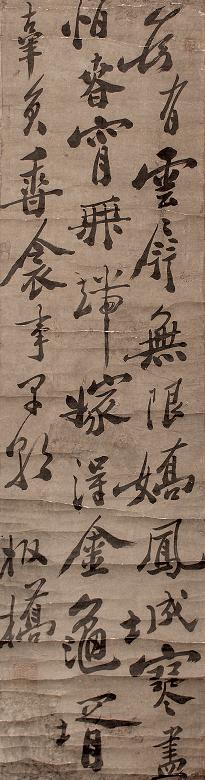 為有雲屏無限嬌鳳城寒盡
怕春宵無端嫁得金龜壻
辜負香衾事早朝 板橋